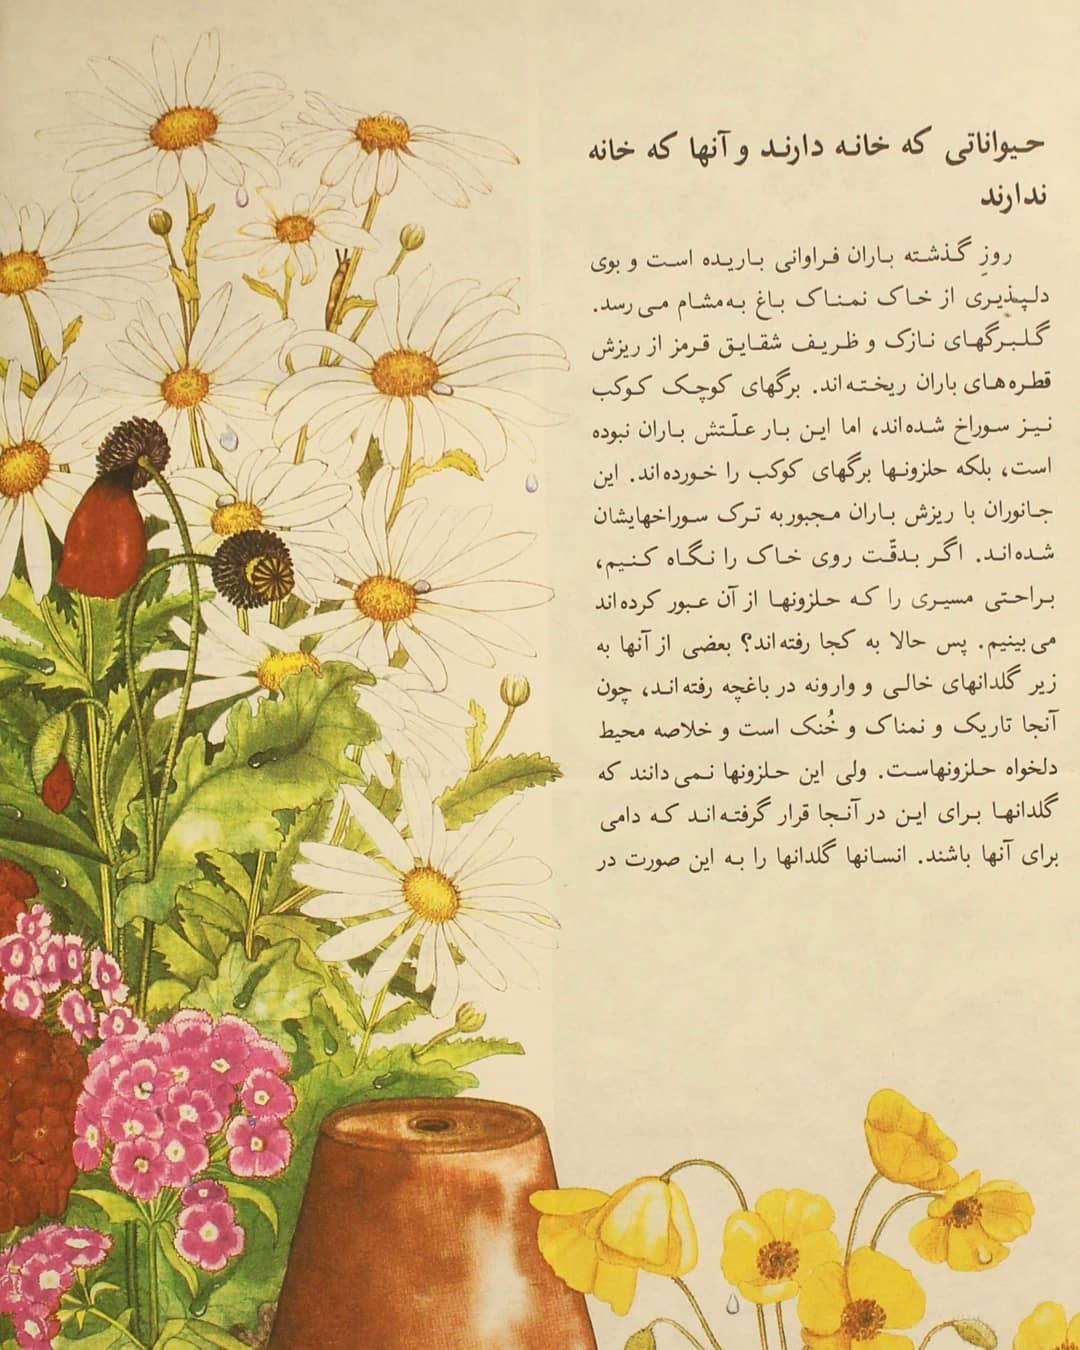 حیواناتی که خانه دارند و آنها که خانه
ندارند
روزِ گذشته باران فراوانی باریده است و بوی
دلپذیری از خاک نمناک باغ به‌مشام می‌رسد.
گلبرگهای نازک و ظریف شقایق قرمز از ریزش
قطره‌های باران ریخته‌اند. برگهای کوچک کوکب
نیز سوراخ شده‌اند، اما این بار علّتش باران نبوده
است، بلکه حلزونها برگهای کوکب را خورده‌اند. این
جانوران با ریزش باران مجبور به ترک سوراخهایشان
شده‌اند. اگر بدقّت روی خاک را نگاه کنیم،
براحتی مسیری را که حلزونها از آن عبور کرده‌اند
می‌بینیم. پس حالا به کجا رفته‌اند؟ بعضی از آنها به
زیر گلدانهای خالی و وارونه در باغچه رفته‌اند، چون
آنجا تاریک و نمناک و خُنک است و خلاصه محیط
دلخواه حلزونهاست. ولی این حلزونها نمی‌دانند که
گلدانها برای این در آنجا قرار گرفته‌اند که دامی
برای آنها باشند. انسانها گلدانها را به این صورت در